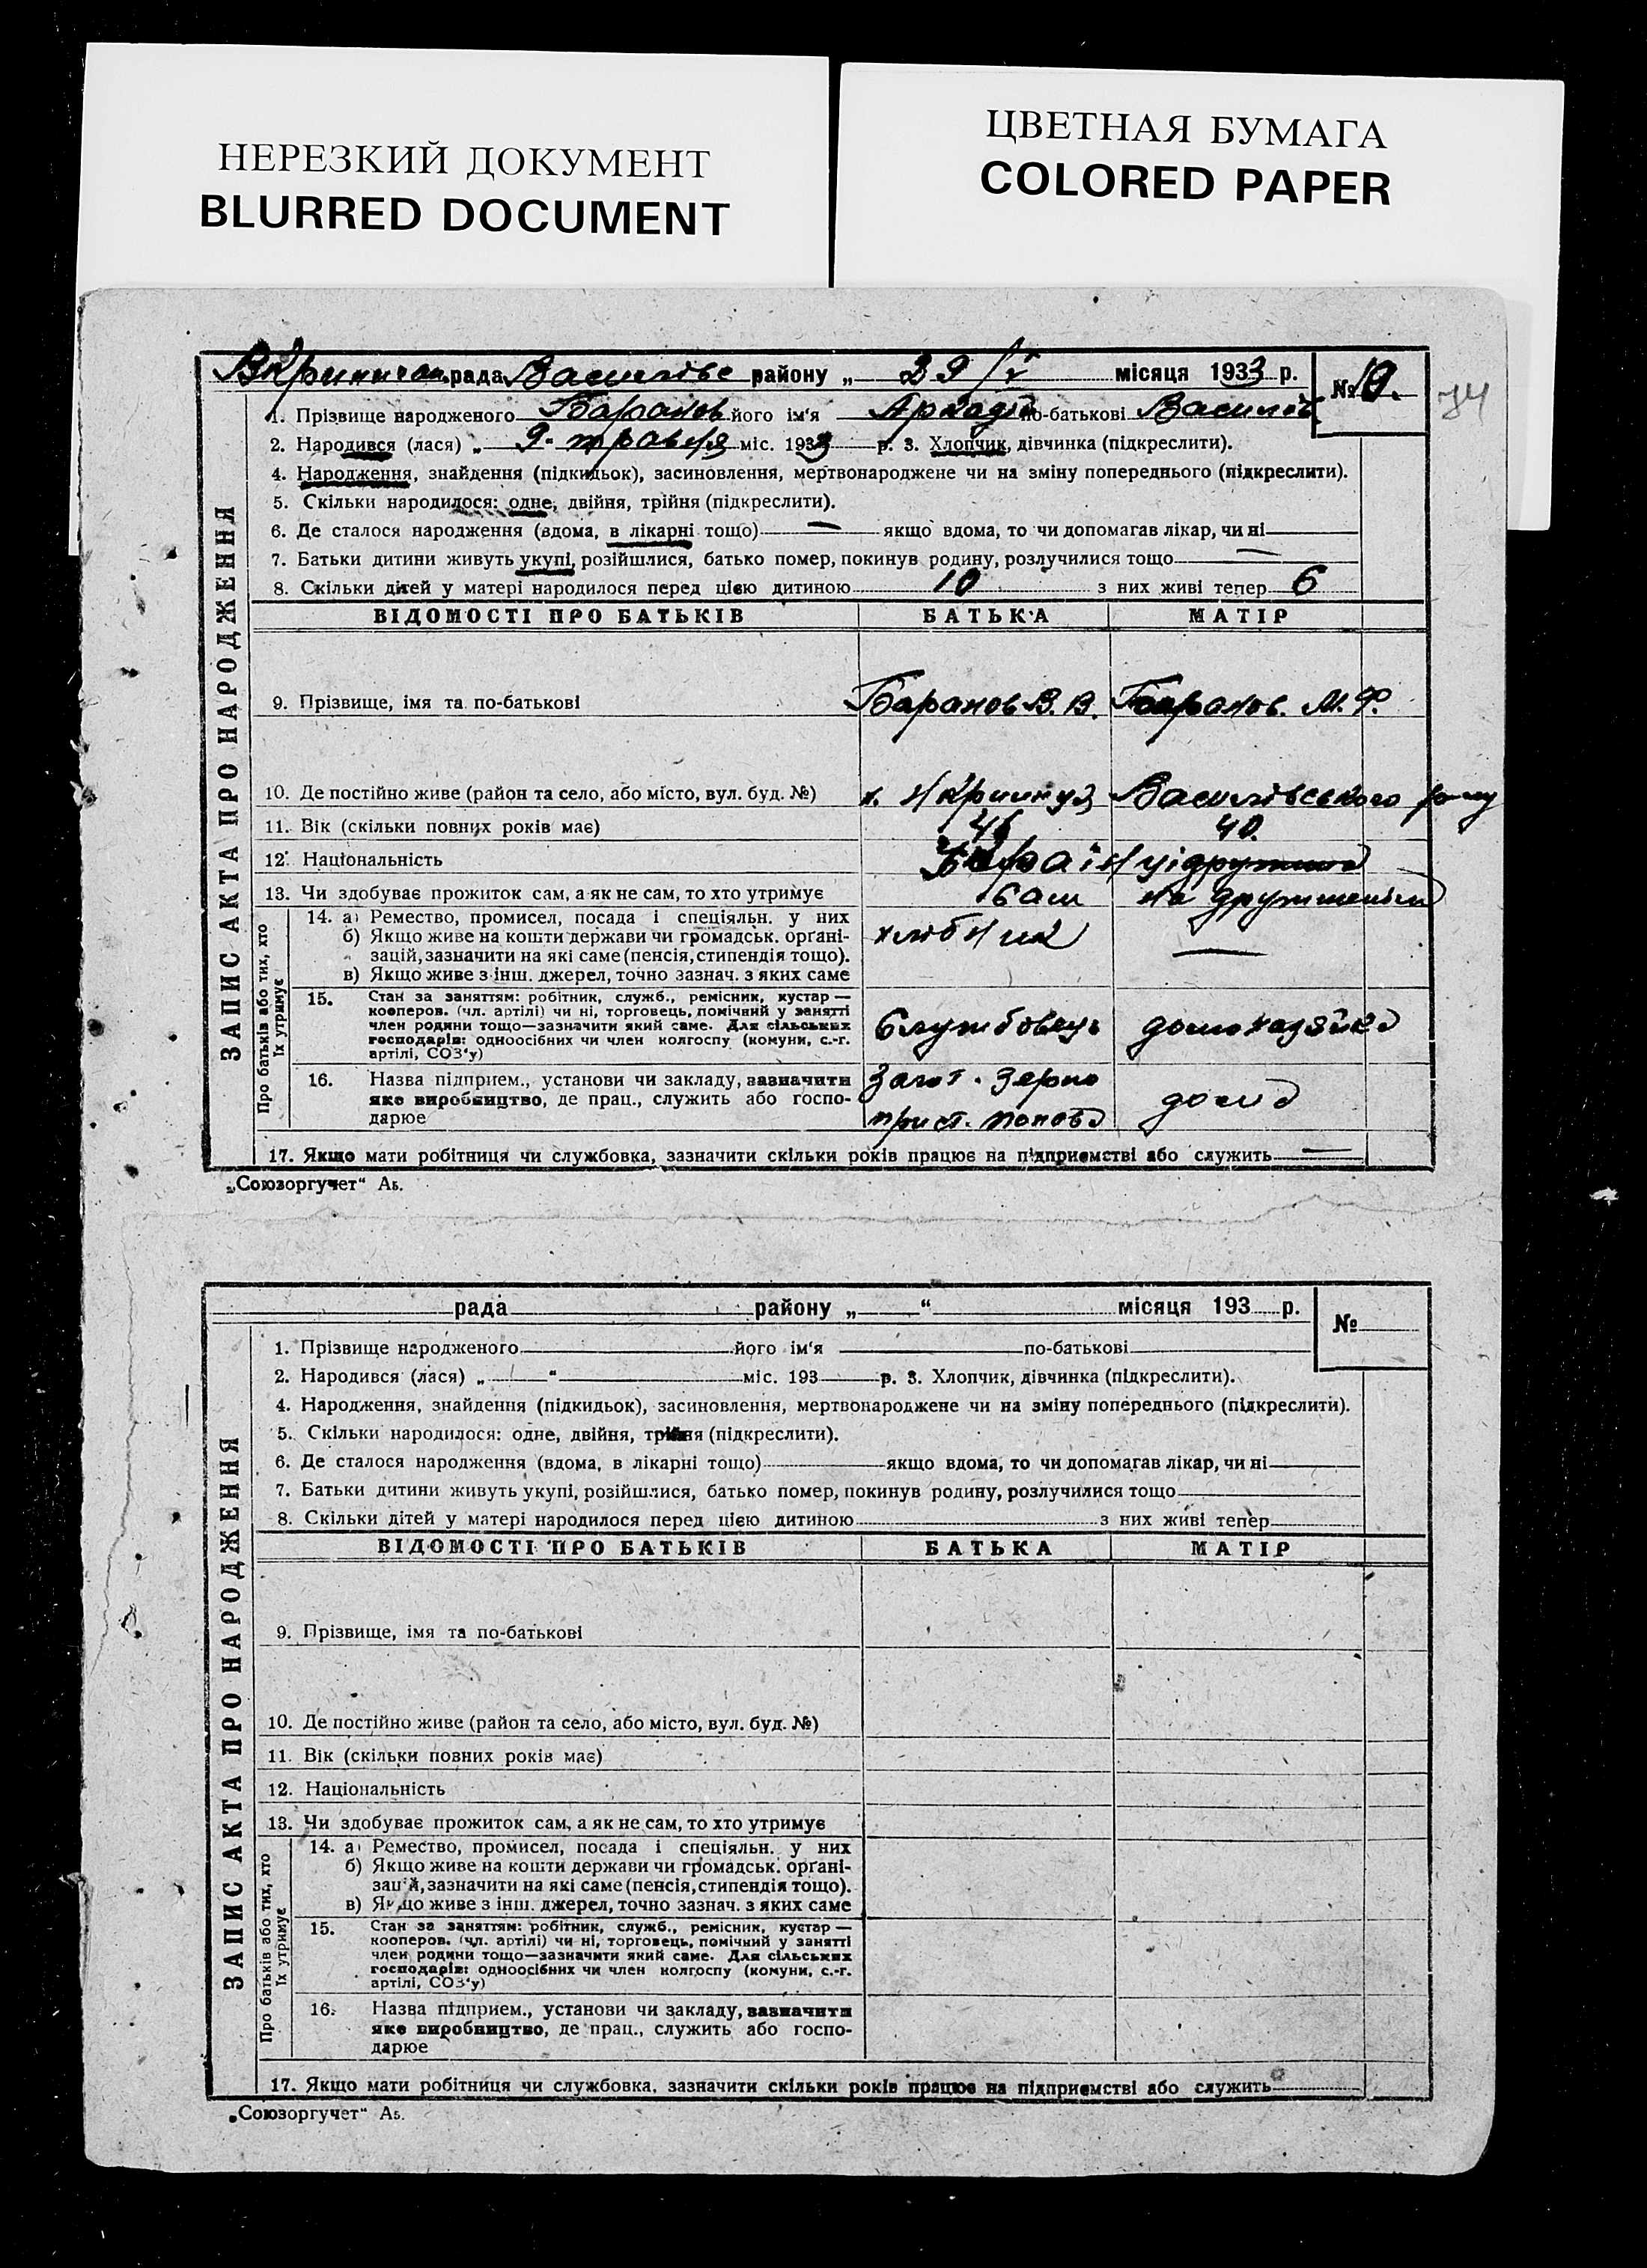 НЕРЕЗКИЙ ДОКУМЕНТ
BLURRED DOCUMENT
ЦВЕТНАЯ БУМАГА
COLORED PAPER
рада Василівс району „ 29/V місяця 1933 р. № 19.
74
1. Прізвище народженого Баранов його ім'я Аркадій по-батькові Василів
2. Народився (лася) „ 9. травня міс. 1933 р. 3. Хлопчик, дівчинка (підкреслити).
4. Народження, знайдення (підкидьок), засиновлення, мертвонароджене чи на зміну попереднього (підкреслити).
5. Скільки народилося: одне, двійня, трійня (підкреслити).
6. Де сталося народження (вдома, в лікарні тощо) — якщо вдома, то чи допомагав лікар, чи ні
7. Батьки дитини живуть укупі, розійшлися, батько помер, покинув родину, розлучилися тощо —
8. Скільки дітей у матері народилося перед цією дитиною 10 з них живі тепер 6
ЗАПИС АКТА ПРО НАРОДЖЕННЯ
ВІДОМОСТІ ПРО БАТЬКІВ БАТЬКА МАТІР
9. Прізвище, імя та по-батькові Баранов В. В. Баранов. М. Ф.
10. Де постійно живе (район та село, або місто, вул. буд. №) Василівського
11. Вік (скільки повних років має) 40.
12. Національність
13. Чи здобуває прожиток сам, а як не сам, то хто утримує сам на
Про батьків або тих, хто їх утримує
14. а) Ремество, промисел, посада і спеціяльн. у них
б) Якщо живе на кошти держави чи громадськ. орґані-
зацій, зазначити на які саме (пенсія, стипендія тощо).
в) Якщо живе з інш. джерел, точно зазнач. з яких саме
—
15. Стан за заняттям: робітник, служб., ремісник, кустар —
кооперов. (чл. артілі) чи ні, торговець, помічний у занятті
член родини тощо—зазначити який саме. Для сільських
господарів: одноосібних чи член колгоспу (комуни, с.-г.
артілі, СОЗ'у)
Службовець домохазяйка
16. Назва підприєм., установи чи закладу, зазначити
яке виробництво, де прац., служить або госпо-
дарюе
Загот. Зерно
прист. Попова дома
17. Якщо мати робітниця чи службовка, зазначити скільки років працює на підприємстві або служить —
„Союзоргучет" Аь.
рада району „ “ місяця 193 р. №
1. Прізвище народженого його ім'я по-батькові
2. Народився (лася) „ “ міс. 193 р. 3. Хлопчик, дівчинка (підкреслити).
4. Народження, знайдення (підкидьок), засиновлення, мертвонароджене чи на зміну попереднього (підкреслити).
5. Скільки народилося: одне, двійня, трійня (підкреслити).
6. Де сталося народження (вдома, в лікарні тощо) якщо вдома, то чи допомагав лікар, чи ні
7. Батьки дитини живуть укупі, розійшлися, батько помер, покинув родину, розлучилися тощо
8. Скільки дітей у матері народилося перед цією дитиною з них живі тепер
ЗАПИС АКТА ПРО НАРОДЖЕННЯ
ВІДОМОСТІ ПРО БАТЬКІВ БАТЬКА МАТІР
9. Прізвище, імя та по-батькові
10. Де постійно живе (район та село, або місто, вул. буд. №)
11. Вік (скільки повних років має)
12. Національність
13. Чи здобуває прожиток сам, а як не сам, то хто утримує
Про батьків або тих, хто їх утримує
14. а) Ремество, промисел, посада і спеціяльн. у них
б) Якщо живе на кошти держави чи громадськ. орґані-
зацій, зазначити на які саме (пенсія, стипендія тощо).
в) Якщо живе з інш. джерел, точно зазнач. з яких саме
15. Стан за заняттям: робітник, служб., ремісник, кустар —
кооперов. (чл. артілі) чи ні, торговець, помічний у занятті
член родини тощо—зазначити який саме. Для сільських
господарів: одноосібних чи член колгоспу (комуни, с.-г.
артілі, СОЗ'у)
16. Назва підприєм., установи чи закладу, зазначити
яке виробництво, де прац., служить або госпо-
дарюе
17. Якщо мати робітниця чи службовка, зазначити скільки років працює на підприємстві або служить
„Союзоргучет" Аь.